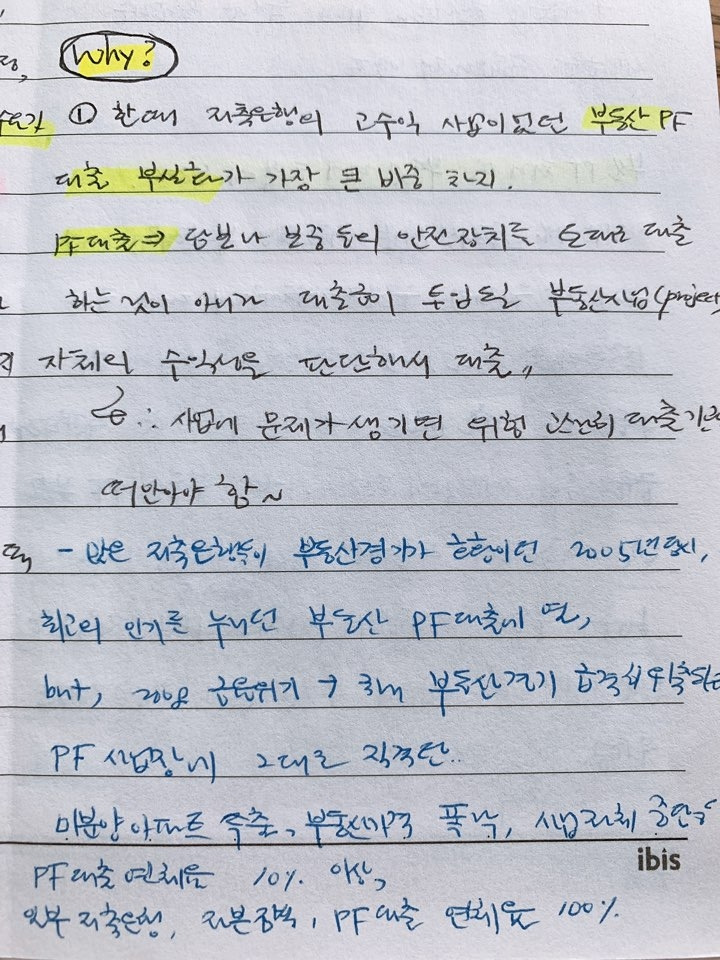 Why?
① 한때 저축은행의 고수익 사업이었던 부동산 PF
대출 부실화가 가장 큰 비중 차지.
PF대출⇒ 담보나 보증 등의 안전장치를 토대로 대출
하는 것이 아니라 대출금이 투입될 부동산사업(project
자체의 수익성을 판단해서 대출〃
∴ 사업에 문제가 생기면 위험 고스란히 대출기관
떠안아야 함~
- 많은 저축은행들이 부동산경기가 호황이던 2005년 당시,
최고의 인기를 누리던 부동산 PF대출에 열,
but, 2008 금융위기 → 국내 부동산경기 급격히 위축되
PF 사업장에 그대로 직격탄..
미분양 아파트 속출, 부동산가격 폭락, 사업자체 중단
PF대출 연체율 10% 이상,
일부 저축은행, 자본잠식, PF대출 연체율 100%
ibis